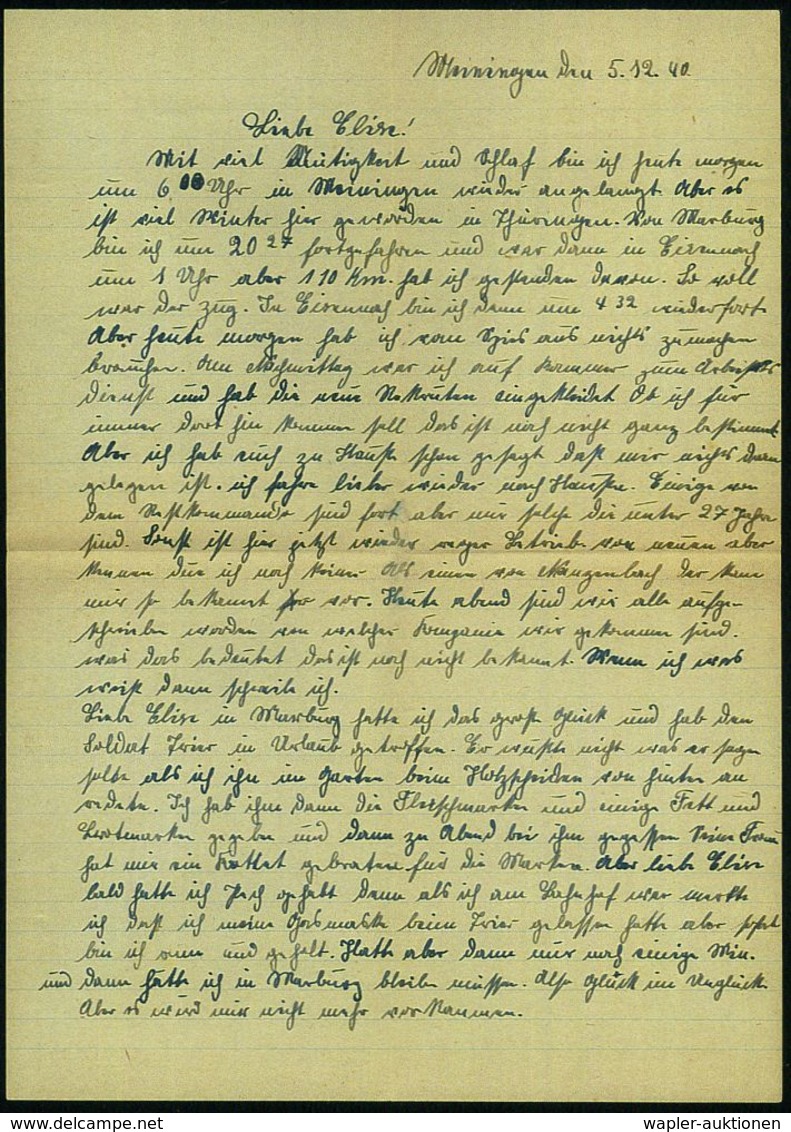 Meiningen den 5.12.40.
Liebe Elise!
Mit viel Mütigkeit und Schlaf bin ich heute morgen
um 6 00 Uhr in Meiningen wieder angelangt. Aber es
ist viel Winter hier geworden in Thüringen. Von Marburg
bin ich um 20 27 fortgefahren und war dann in Eisennach
um 1 Uhr aber 110 Km. hab ich gestanden davon. So voll
war der Zug. In Eisennach bin ich dann um 4 32 wieder fort
Aber heute morgen hab ich vom Spies aus nichts zumachen
brauchen. Am Nachmittag war ich auf Kammer zum Arbeits
dienst und hab die neue Rekruten eingekleidet Ob ich für
immer dort hin kommen soll das ist noch nicht ganz bestimmt
Aber ich hab euch zu Hause schon gesagt daß mir nichts daran
gelegen ist. ich fahre lieber wieder nach Hause. Einige von
dem Restkommando sind fort aber nur solche die unter 27 Jahre
sind. Sonst ist hier jetzt wieder reger Betrieb von neuen aber
kennen due ich noch keiner Als einen von der kam
mir so bekannt vor. Heute abend sind wir alle aufge
schrieben worden von welcher Kompanie wir gekommen sind.
was das bedeutet das ist noch nicht bekannt. Wenn ich was
weiß dann schreibe ich.
Liebe Elise in Marburg hatte ich das große Glück und hab den
Soldat Trier in Urlaub getroffen. Er wußte nicht was er sagen
sollte als ich ihn im Garten beim Holzscheiden von hinten an
redete. Ich hab ihm dann die Fleischmarken und einige Fett und
Brotmarken gegeben und dann zu Abend bei ihm gegessen Seine Frau
hat mir ein Kottlet gebraten für die Marken. Aber liebe Elise
bald hatte ich Pech gehabt denn als ich am Bahnhof war merkte
ich daß ich meine Gasmaske beim Trier gelassen hatte aber sofort
bin ich und geholt. Hatte aber dann nur noch einige Min.
und dann hätte ich in Marburg bleiben müssen. Also Glück im Unglück
Aber es wird mir nicht mehr vorkommen.
wapler-auktionen